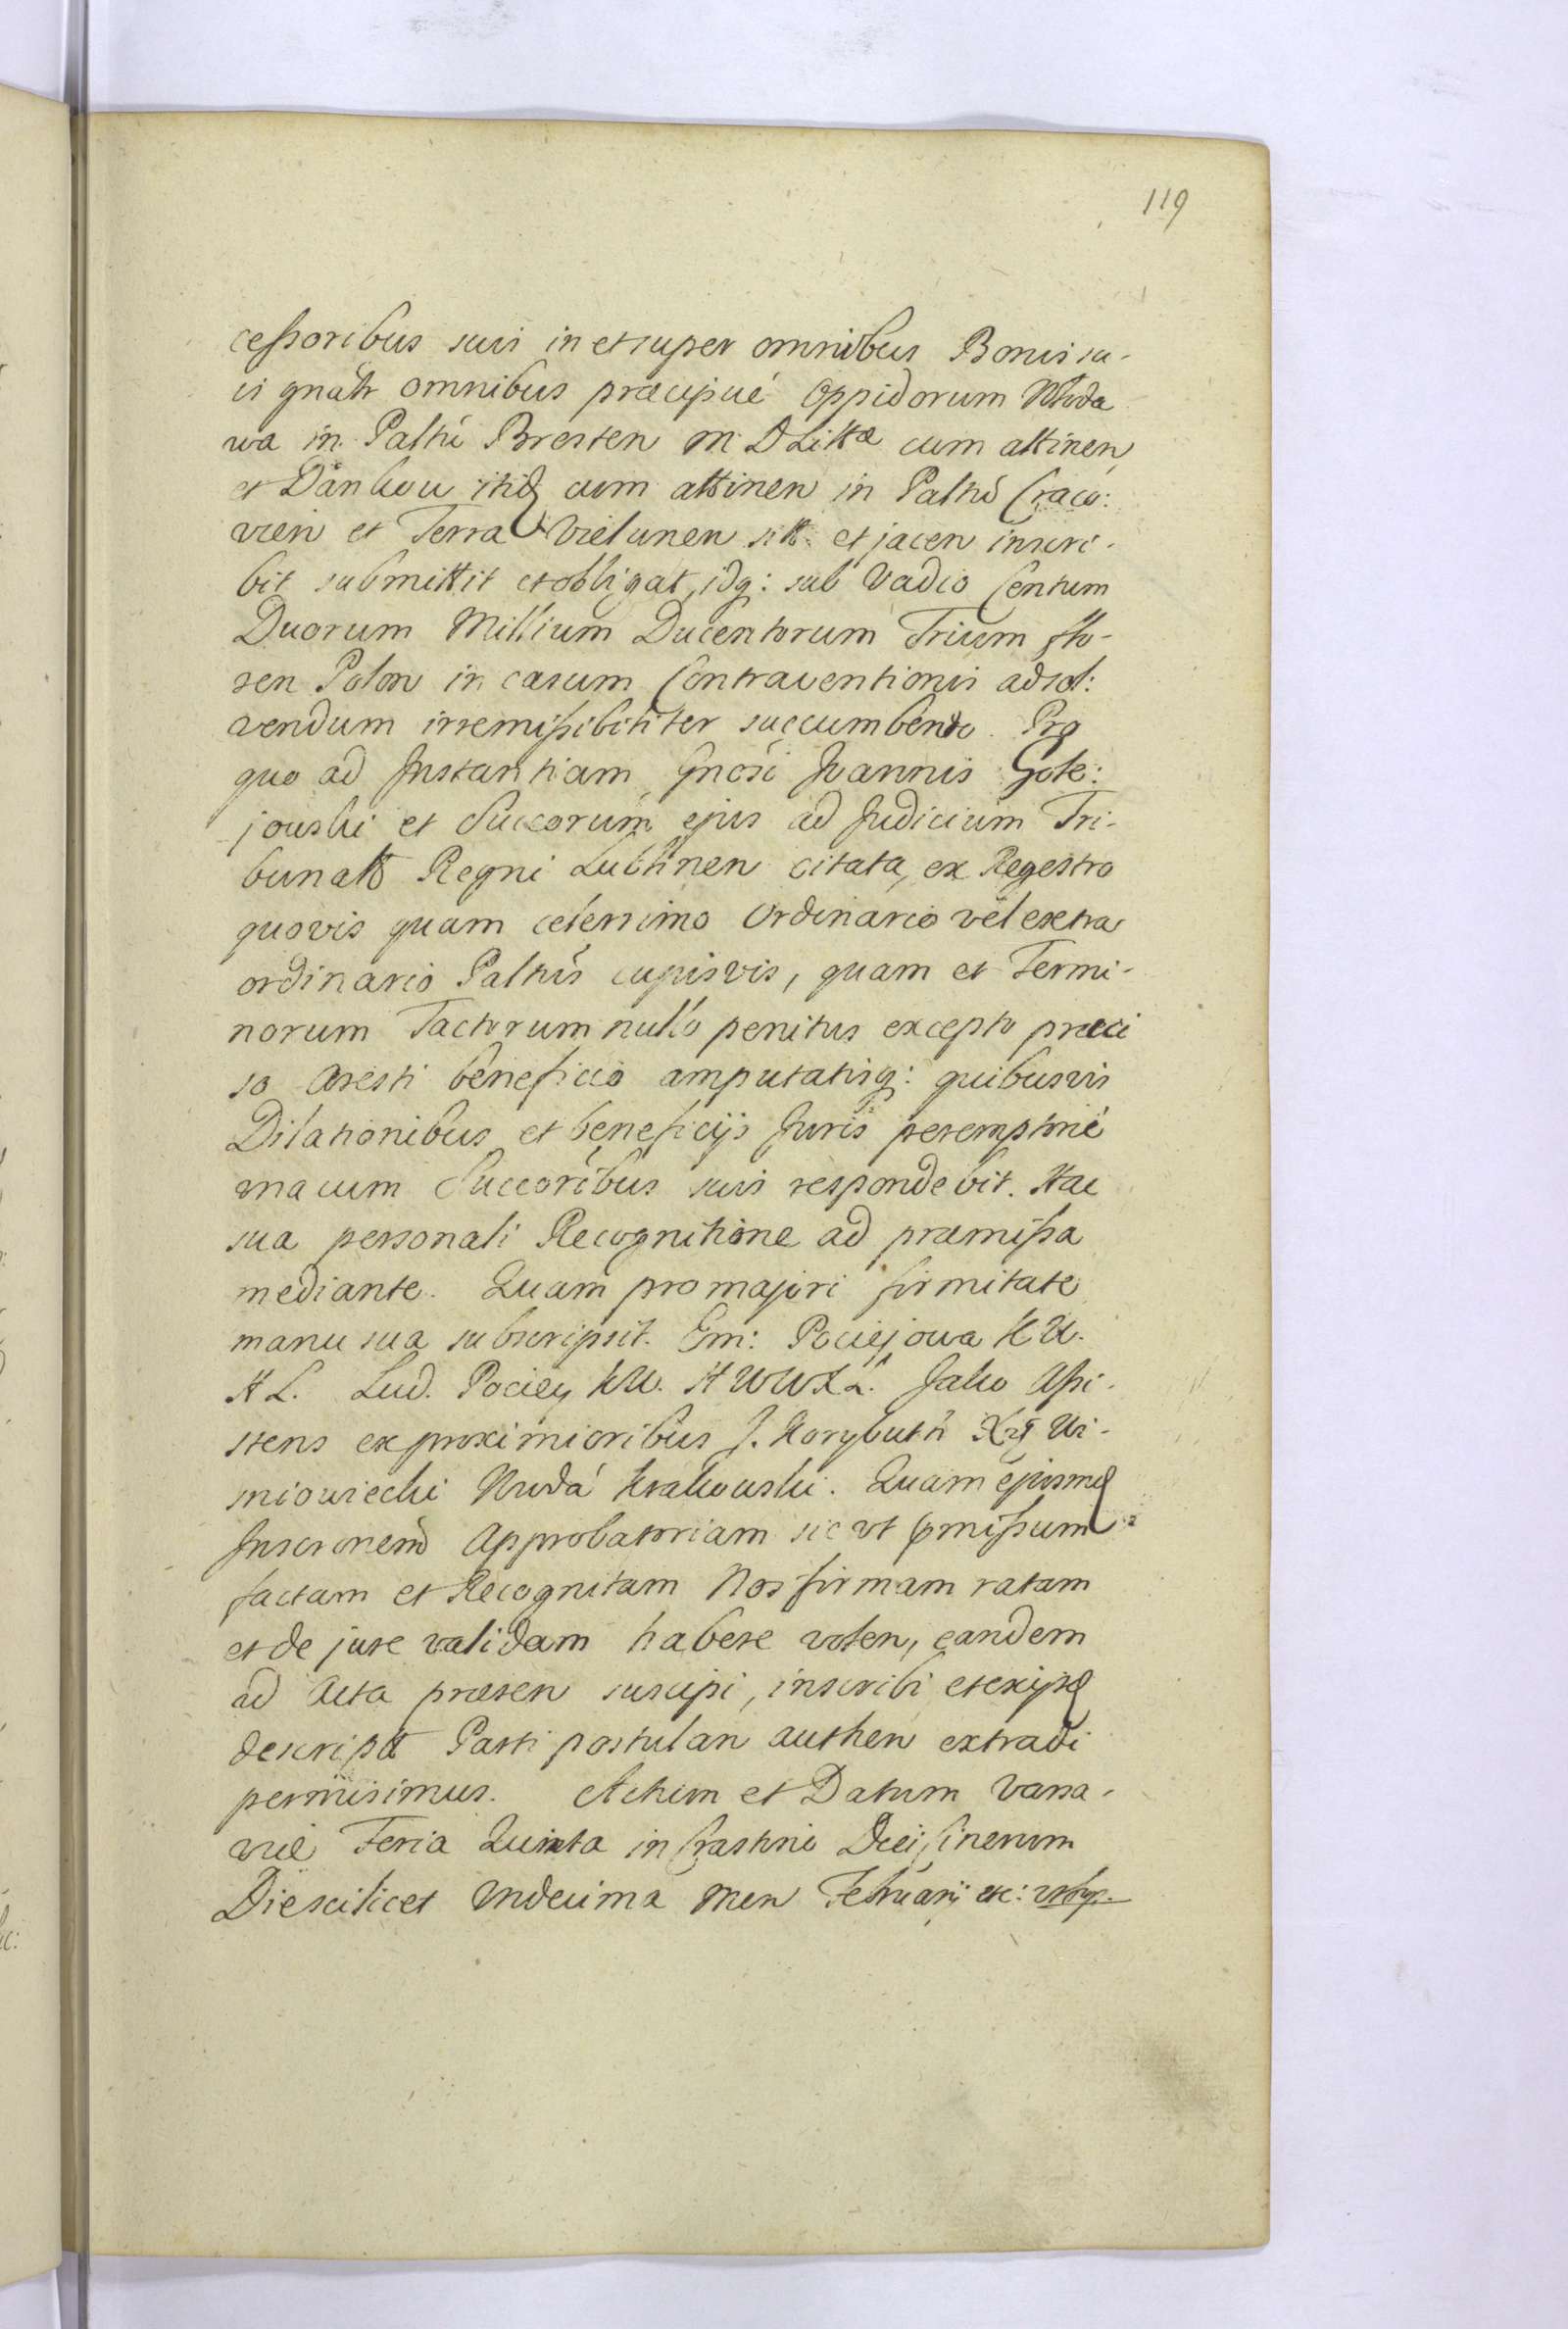 119
cessoribus suis in et super omnibus Bonis su-
is gnãlr omnibus præcipué Oppidorum Włoda
wa in Palttũ Bresten M. D. Littæ cum attinen,
et Dankow itidq cum attinen in Palttũ Craco:
vien et Terra Vielunen sitt. et jacen inscri-
bit submittit et obligat, idq: sub Vadio Centum
Duorum Millium Ducentorum Trium flo-
ren Polon in casum Contraventionis adsol:
vendum irremissibiliter succumbendo. Pro
quo ad Instantiam Gnosi Joannis Gole:
jowski et Succorum ejus ad Judicium Tri-
bunalt Regni Lublinen citata, ex Regestro
quovis quam celerrimo Ordinario vel extra
ordinario Palttũs cujusvis, quam et Termi-
norum Tactorum nullo penitus excepto præci
so Aresti beneficio amputatisq: quibusvis
Dilationibus et beneficijs Juris peremptorié
una cum Succoribus suis respondebit. Hac
sua personali Recognitione ad præmissa
mediante. Quam pro majori firmitate
manu sua subscripsit. Em: Pociejowa K W.
H L. Lud. Pociey KW. H W W X L. Jako Assi-
stens ex proximioribus J. Korybuth Xżę Wi-
sniowiecki Wwdá Krakowski. Quam ejusmq
Inscrõnem Approbatoriam sic ut pmissum
factam et Recognitam Nos firmam ratam
et de jure validam habere volen, eandem
ad Acta præsen suscipi, inscribi et exijsq
descript Parti postulan authen extradi
permisimus. Actum et Datum Varsa-
viæ Feria Quinta in Crastino Diei Cinerum
Die scilicet Undecima Men Februarij etc: utsup.